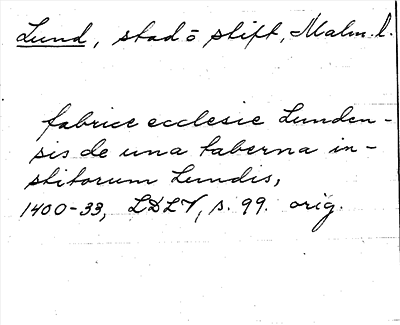 Lund, stad o stift, Malm. l.
fabrice ecclesie Lunden-
sis de una taberna in-
stitorum Lundis,
1400-33, LDLV, s. 99. orig.